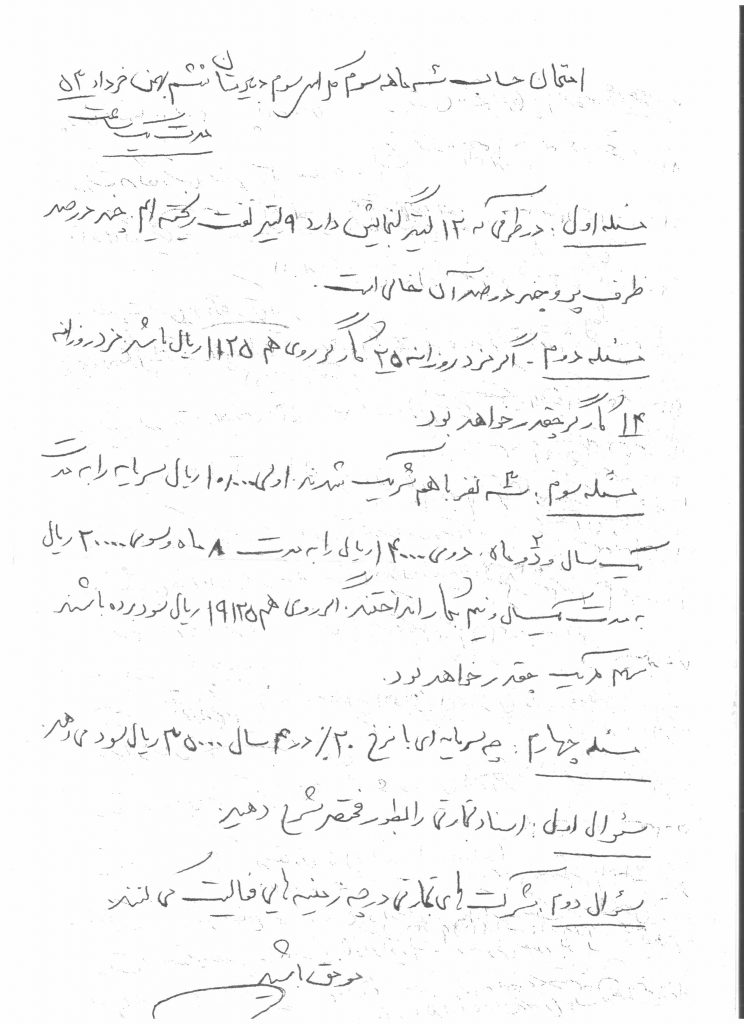 امتحان حساب سه ماهه سوم کلاس سوم دبیرستان ششم بهمن خرداد ۵۳
مدت یک ساعت
مسئله اول: در ظرفی که ۱۲ لیتر گنجایش دارد ۹ لیتر نفت ریخته ایم. چند درصد
ظرف پر و چند درصد آن خالی است.
مسئله دوم - اگر مزد روزانه ۲۵ کارگر روی هم ۱۱۲۵ ریال باشد مزد روزانه
۱۴ کارگر چقدر خواهد بود.
مسئله سوم: سه نفر با هم شریک شدند. اولی ۱۰۸۰۰۰ ریال سرمایه را به مدت
یک سال و دو ماه. دومی ۱۴۰۰۰۰ ریال را به مدت ۸ ماه و سومی ۲۰۰۰۰ ریال
به مدت یکسال و نیم بکار انداختند. اگر روی هم ۱۹۱۲۵ ریال سود برده باشند
سهم هر یک چقدر خواهد بود.
مسئله چهارم: چه سرمایه ای با نرخ ۲۰٪ در ۴ سال ۳۵۰۰۰ ریال سود می دهد.
سئوال اول: اسناد تجارتی را بطور مختصر شرح دهید.
سئوال دوم: شرکت های تجارتی در چه زمینه هایی فعالیت می کنند.
موفق باشید